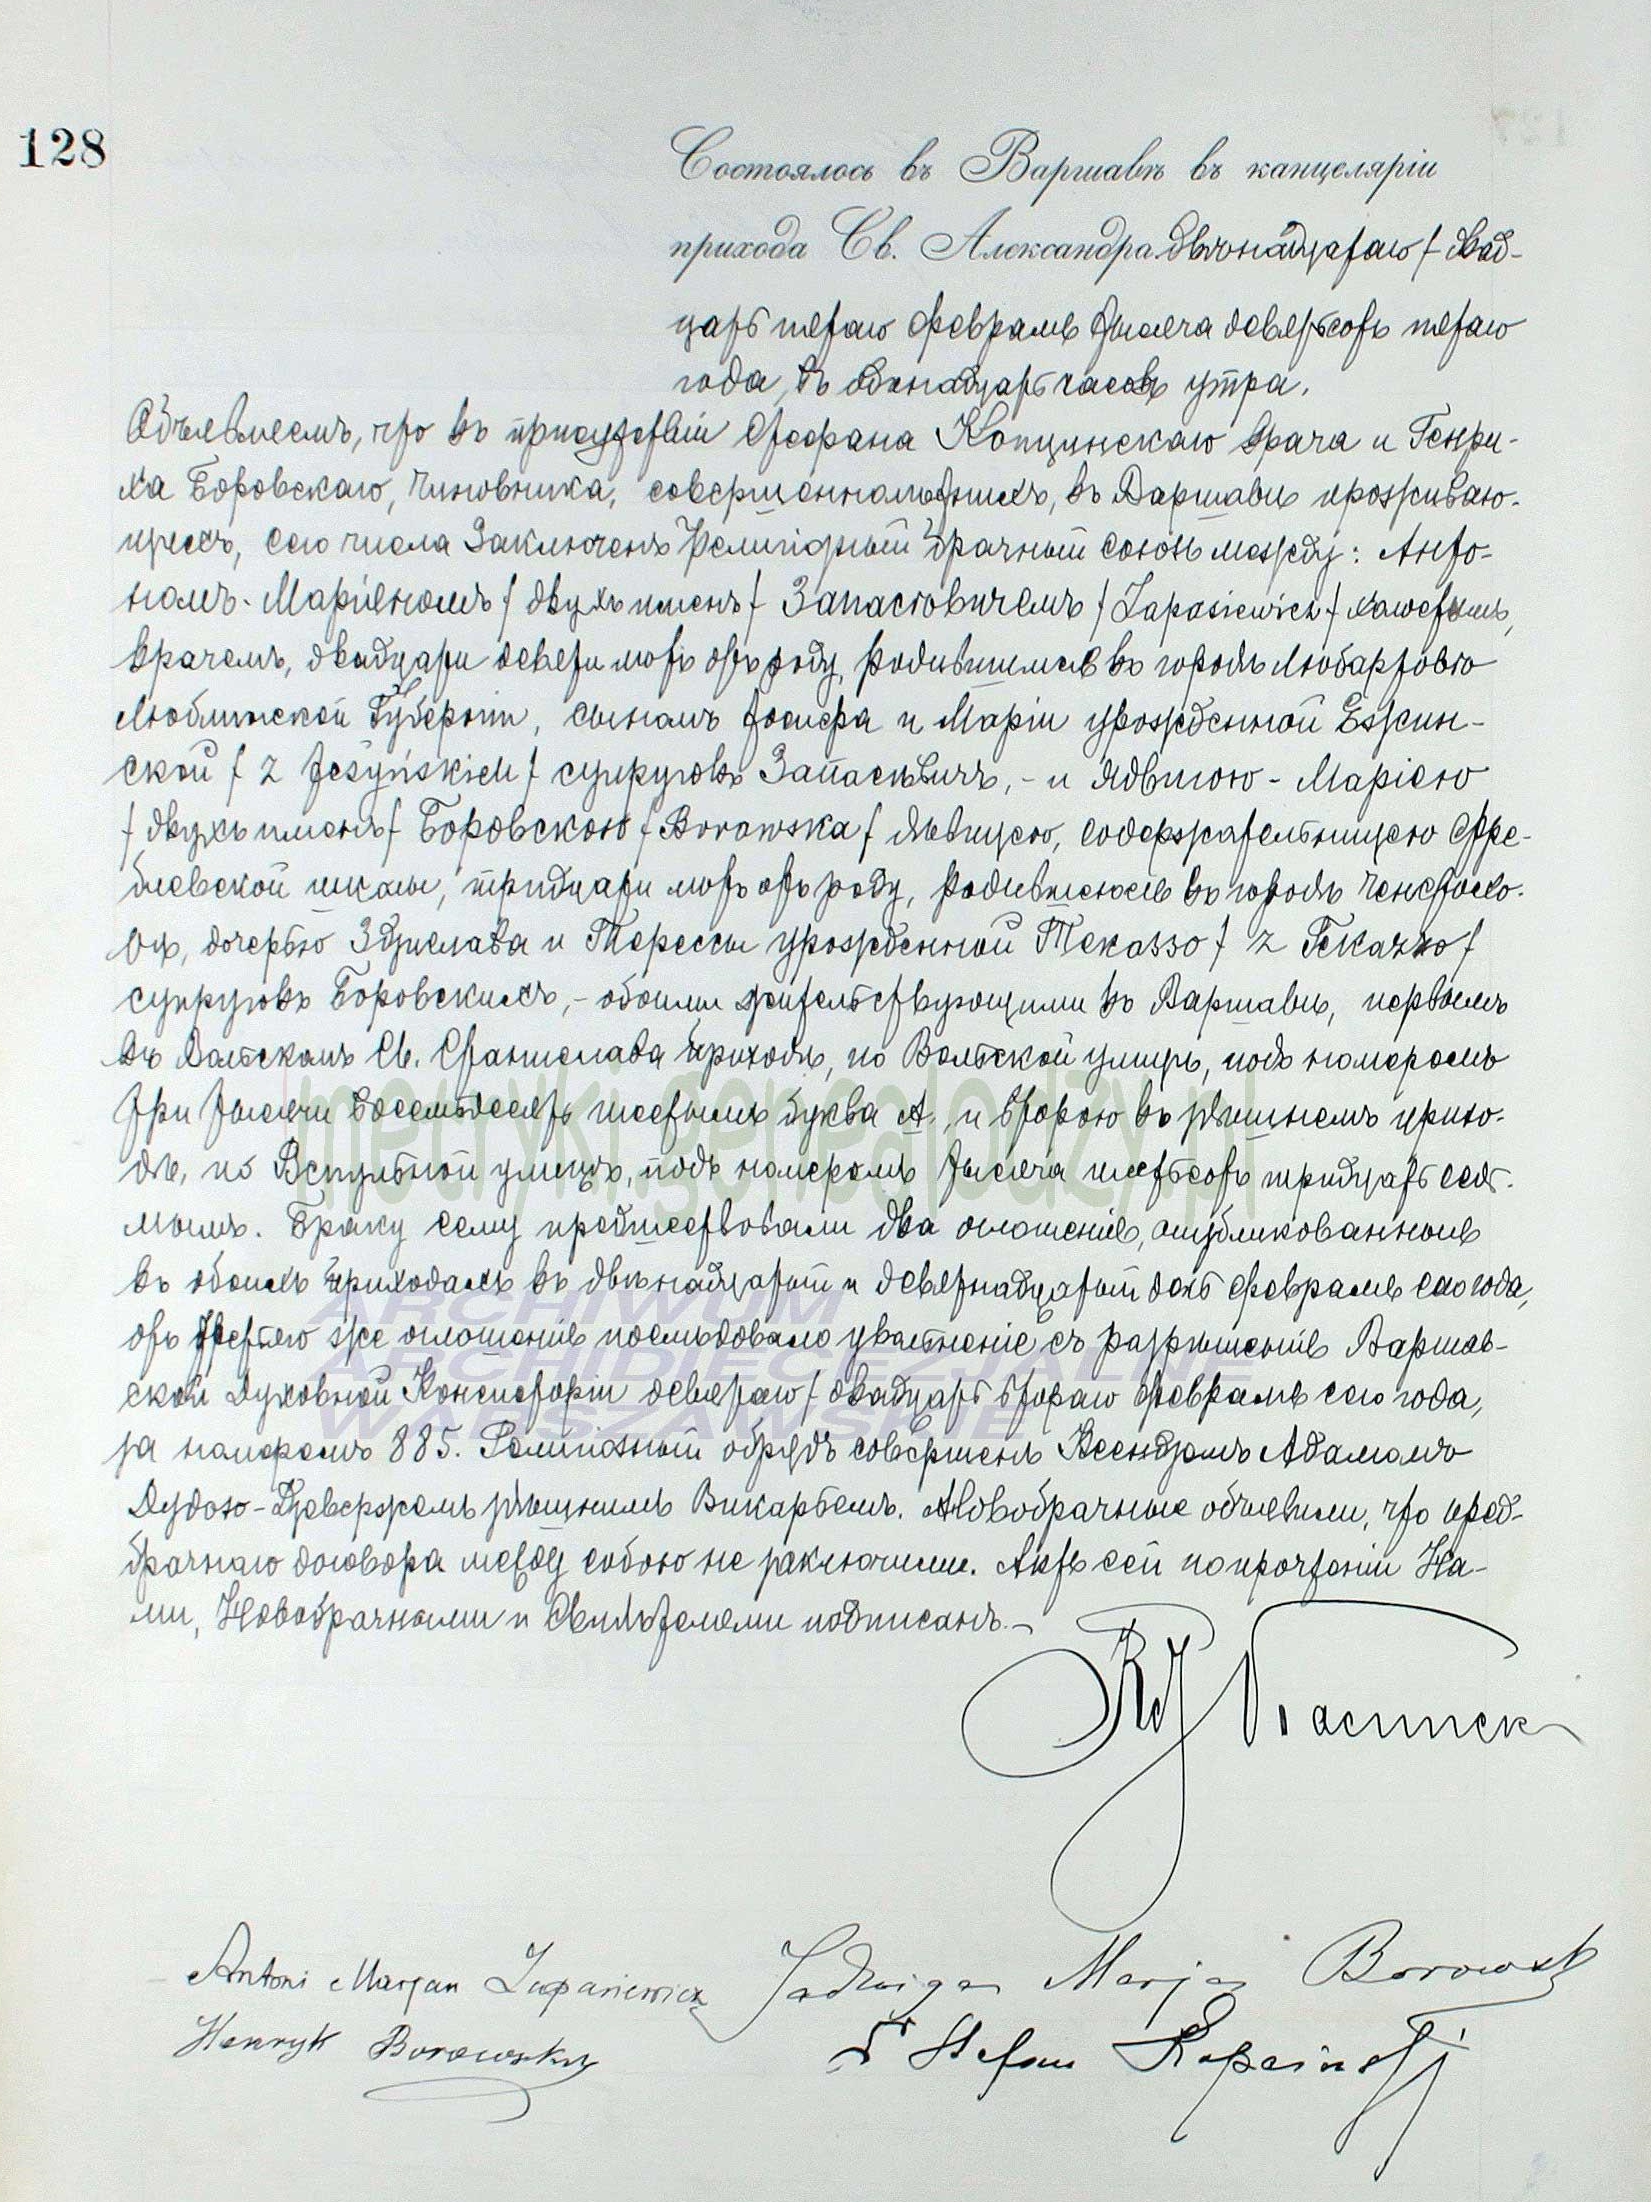 128
Состоялось въ Варшавѣ въ канцеляріи
прихода Св. Александра двѣнадцатаго / двад-
цать пятаго февраля тысяча девятьсотъ пятаго
года, въ одинадцать часовъ утра.
Объявляемъ, что въ присутствіи Стефана Копцинскаго врача и Генри-
ха Боровскаго, чиновника, совершеннолѣтнихъ, въ Варшавѣ прожываю-
щихъ, сего числа заключенъ религіозный брачный союзъ между: Анто-
номъ-Маріяномъ / двухъ именъ / Запасѣвичемъ / Zapasiewicz / холостымъ,
врачемъ, двадцати девяти лѣтъ отъ роду, родившимся въ городѣ Любартовѣ
Люблинской Губерніи, сыномъ Іосифа и Маріи урожденной Ежин-
ской / z Jeżyńskich / супруговъ Запасѣвичъ, - и Ядвигою - Маріею
/ двухъ именъ / Боровскою / Borowska / дѣвицею, содержательницею Фре-
блевской школы, тридцати лѣтъ отъ роду, родившеюся въ городѣ Ченстохо-
вѣ, дочерью Здзислава и Терессы урожденной /
супруговъ Боровскихъ, - обоими жительствующими въ Варшавѣ, первымъ
въ Вольскомъ Св. Станислава приходѣ, по Вольской улицѣ, подъ номеромъ
три тысячи восемьдесятъ шестымъ буква А., и второю въ здѣшнемъ прихо-
дѣ, по Вспульной улицѣ, подъ номеромъ тысяча шестьсотъ тридцать седь-
мымъ. Браку сему предшествовали два оглашенія, опубликованныя
въ обоихъ приходахъ въ двѣнадцатый и девятнадцатый день февраля сего года,
отъ третьяго же оглашенія послѣдовало увольненіе съ разрѣшенія Варшав-
ской Духовной Консисторіи девятаго / двадцать втораго февраля сего года,
за номеромъ 885. Религіозный обрядъ совершенъ Ксендзомъ Адамомъ
здѣшнимъ Викаріемъ. Новобрачные объявили, что пред-
брачнаго договора между собою не заключили. Актъ сей по прочтеніи На-
ми, Новобрачными и Свидѣтелями подписанъ. -
Antoni Marjan Zapasiewicz Jadwiga Marja Borowska
Henryk Borowski Dr Stefan Kopciński
metryki.genealodzy.pl
ARCHIWUM
ARCHIDIECEZJALNE
WARSZAWSKIE